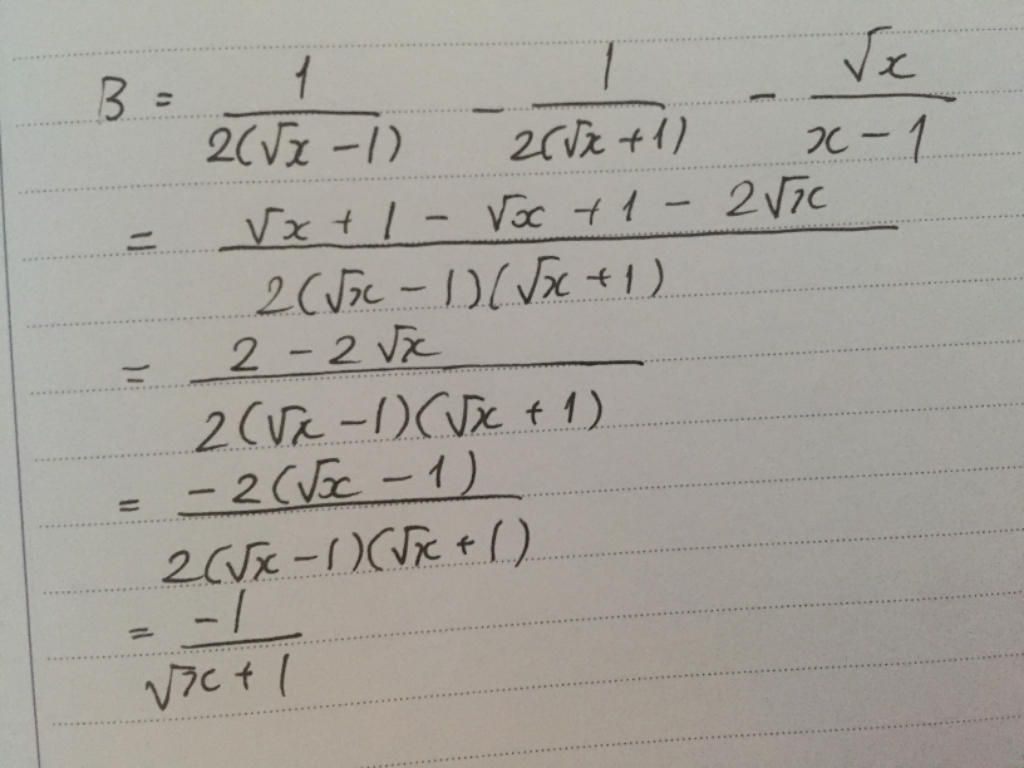 B = 1/(2(√x − 1)) − 1/(2(√x + 1)) − √x/(x − 1)
= (√x + 1 − √x + 1 − 2√x)/(2(√x − 1)(√x + 1))
= (2 − 2√x)/(2(√x − 1)(√x + 1))
= (−2(√x − 1))/(2(√x − 1)(√x + 1))
= (−1)/(√x + 1)